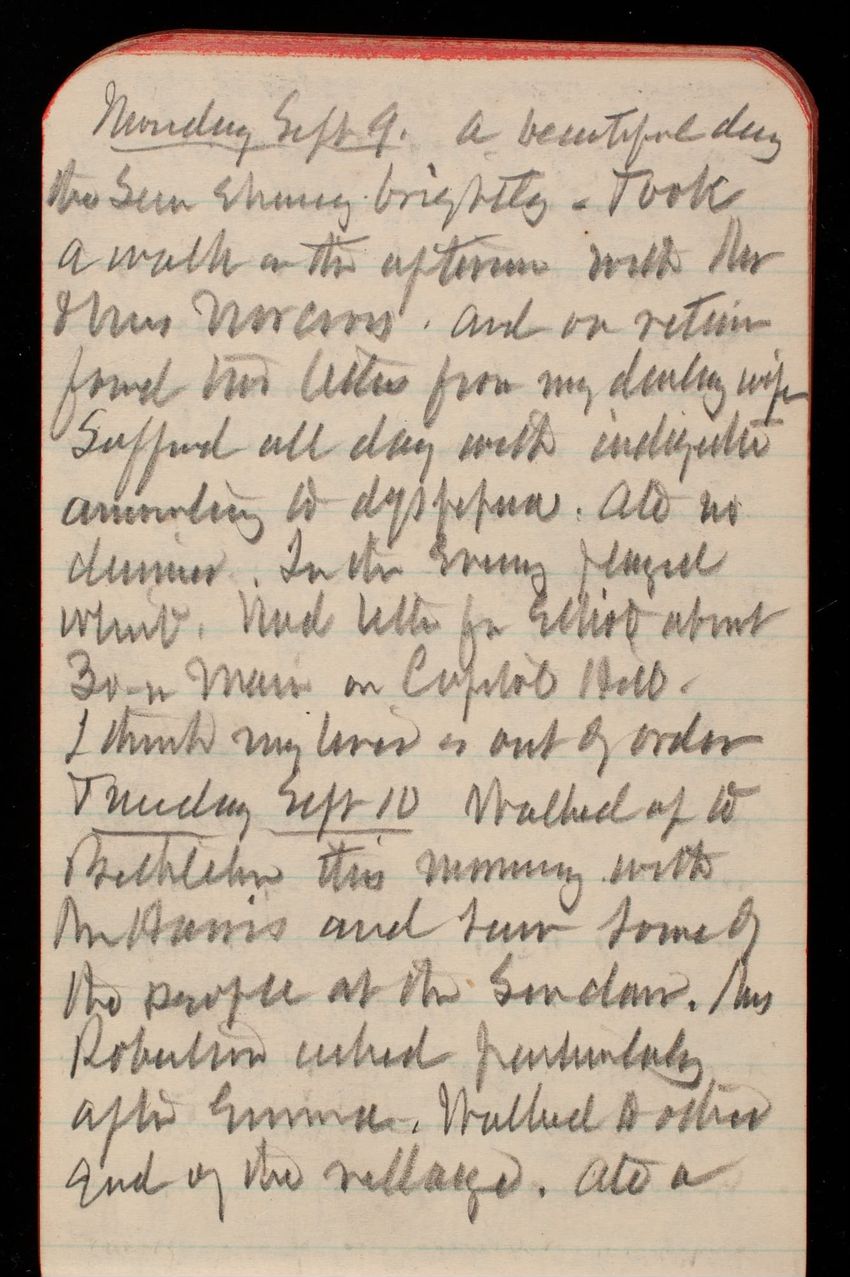 Monday Sept 9. A beautiful day
the Sun Shining brightly - Took
a walk in the afternoon with Mr
Thos Norcross. and on return
found two letters from my darling wife
Suffered all day with indigestion
amounting to dyspepsia. Ate no
dinner. In the Evening played
whist. Had letter from Elliot about
Main on Capitol Hill.
I think my liver is out of order
Tuesday Sept 10 Walked up to
Bethlehem this morning with
Mr Harris and saw some of
the people at the Sinclair. Mrs
Robertson asked particularly
after Emma. Walked to other
End of the village. Ate a